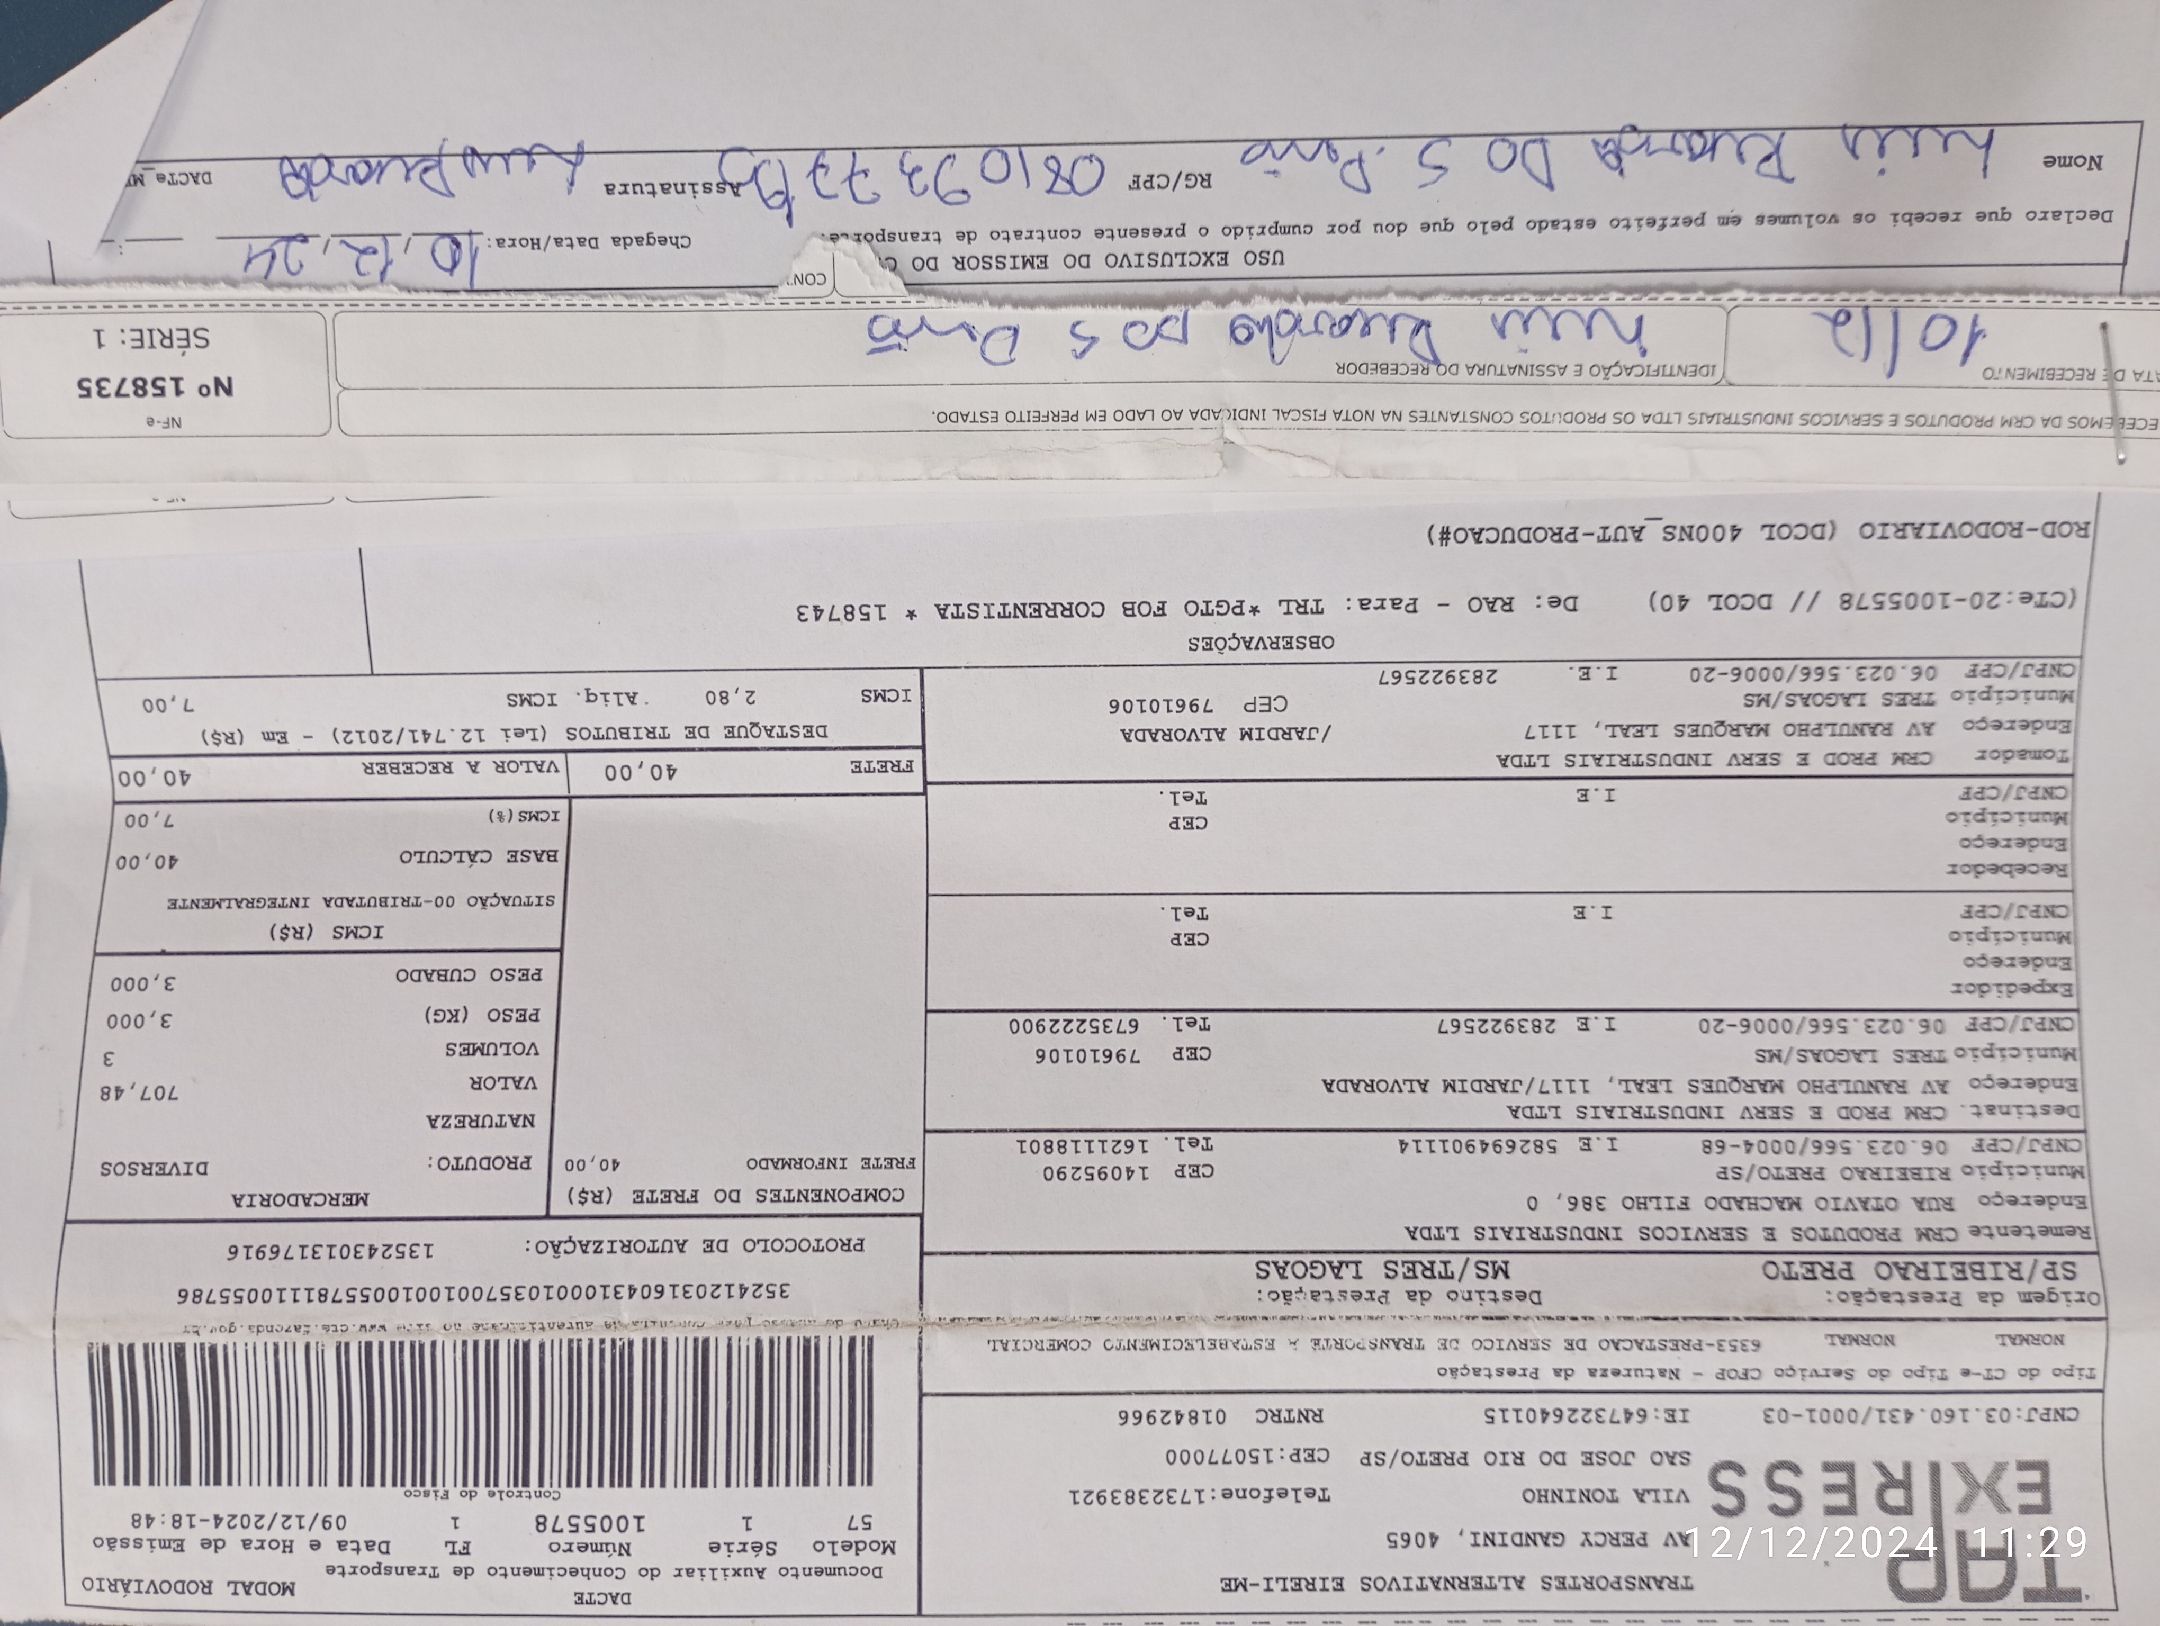 TAP
EXPRESS
TRANSPORTES ALTERNATIVOS EIRELI-ME
AV PERCY GANDINI, 4065
VILA TONINHO Telefone:1732383921
SAO JOSE DO RIO PRETO/SP CEP:15077000
CNPJ:03.160.431/0001-03 IE:647322640115 RNTRC 01842966
DACTE MODAL RODOVIÁRIO
Documento Auxiliar do Conhecimento de Transporte
Modelo Série Número FL Data e Hora de Emissão
57 1 1005578 1 09/12/2024-18:48
Controle do Fisco
Tipo do CT-e Tipo do Serviço CFOP - Natureza da Prestação
NORMAL NORMAL 6353-PRESTACAO DE SERVICO DE TRANSPORTE A ESTABELECIMENTO COMERCIAL
Chave de acesso para consulta de autenticidade no site www.cte.fazenda.gov.br
35241203160431000103570010010055781110055786
PROTOCOLO DE AUTORIZAÇÃO: 135243013176916
Origem da Prestação: Destino da Prestação:
SP/RIBEIRAO PRETO MS/TRES LAGOAS
Remetente CRM PRODUTOS E SERVICOS INDUSTRIAIS LTDA
Endereço RUA OTAVIO MACHADO FILHO 386, 0
Município RIBEIRAO PRETO/SP CEP 14095290
CNPJ/CPF 06.023.566/0004-68 I.E 582694901114 Tel. 1621118801
Destinat. CRM PROD E SERV INDUSTRIAIS LTDA
Endereço AV RANULPHO MARQUES LEAL, 1117/JARDIM ALVORADA
Município TRES LAGOAS/MS CEP 79610106
CNPJ/CPF 06.023.566/0006-20 I.E 283922567 Tel. 6735222900
Expedidor
Endereço
Município CEP
CNPJ/CPF I.E Tel.
Recebedor
Endereço
Município CEP
CNPJ/CPF I.E Tel.
Tomador CRM PROD E SERV INDUSTRIAIS LTDA
Endereço AV RANULPHO MARQUES LEAL, 1117 /JARDIM ALVORADA
Município TRES LAGOAS/MS CEP 79610106
CNPJ/CPF 06.023.566/0006-20 I.E. 283922567
COMPONENTES DO FRETE (R$)
FRETE INFORMADO 40,00
MERCADORIA
PRODUTO: DIVERSOS
NATUREZA
VALOR 707,48
VOLUMES 3
PESO (KG) 3,000
PESO CUBADO 3,000
ICMS (R$)
SITUAÇÃO 00-TRIBUTADA INTEGRALMENTE
BASE CÁLCULO 40,00
ICMS(%) 7,00
FRETE 40,00 VALOR A RECEBER 40,00
DESTAQUE DE TRIBUTOS (Lei 12.741/2012) - Em (R$)
ICMS 2,80 Aliq. ICMS 7,00
OBSERVAÇÕES
(CTe:20-1005578 // DCOL 40) De: RAO - Para: TRL *PGTO FOB CORRENTISTA * 158743
ROD-RODOVIARIO (DCOL 400NS_AUT-PRODUCAO#)
ECEBEMOS DA CRM PRODUTOS E SERVICOS INDUSTRIAIS LTDA OS PRODUTOS CONSTANTES NA NOTA FISCAL INDICADA AO LADO EM PERFEITO ESTADO.
ATA DE RECEBIMENTO IDENTIFICAÇÃO E ASSINATURA DO RECEBEDOR
10/12 Luis Ricardo DO S
NF-e
Nº 158735
SÉRIE: 1
USO EXCLUSIVO DO EMISSOR DO C
CON
Chegada Data/Hora: 10,12,24
Declaro que recebi os volumes em perfeito estado pelo que dou por cumprido o presente contrato de transporte.
Nome Luis Ricardo DO S. RG/CPF Assinatura Luis Ricardo DACTe_M
12/12/2024 11:29